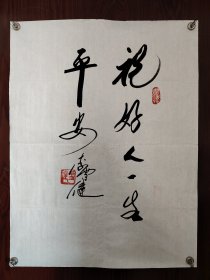 祝好人一生
平安